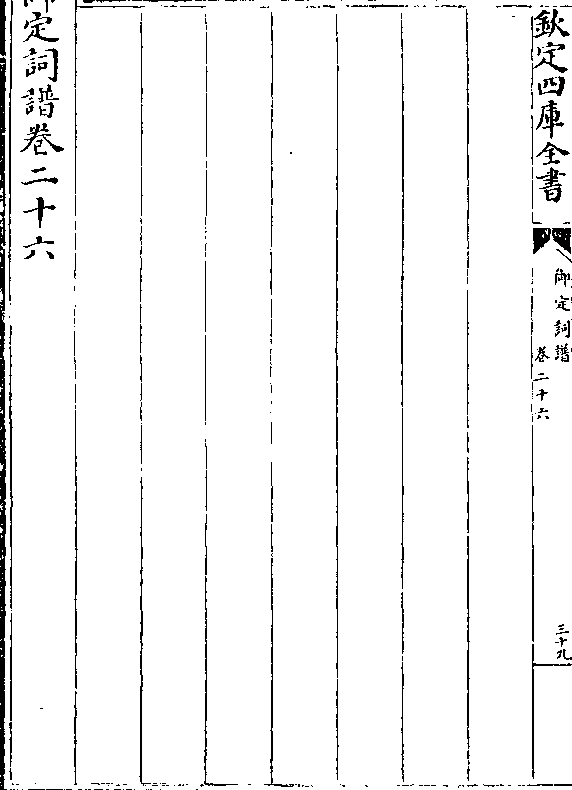 欽定四庫全書
御定詞譜
卷二十六
三十九
御定詞譜卷二十六